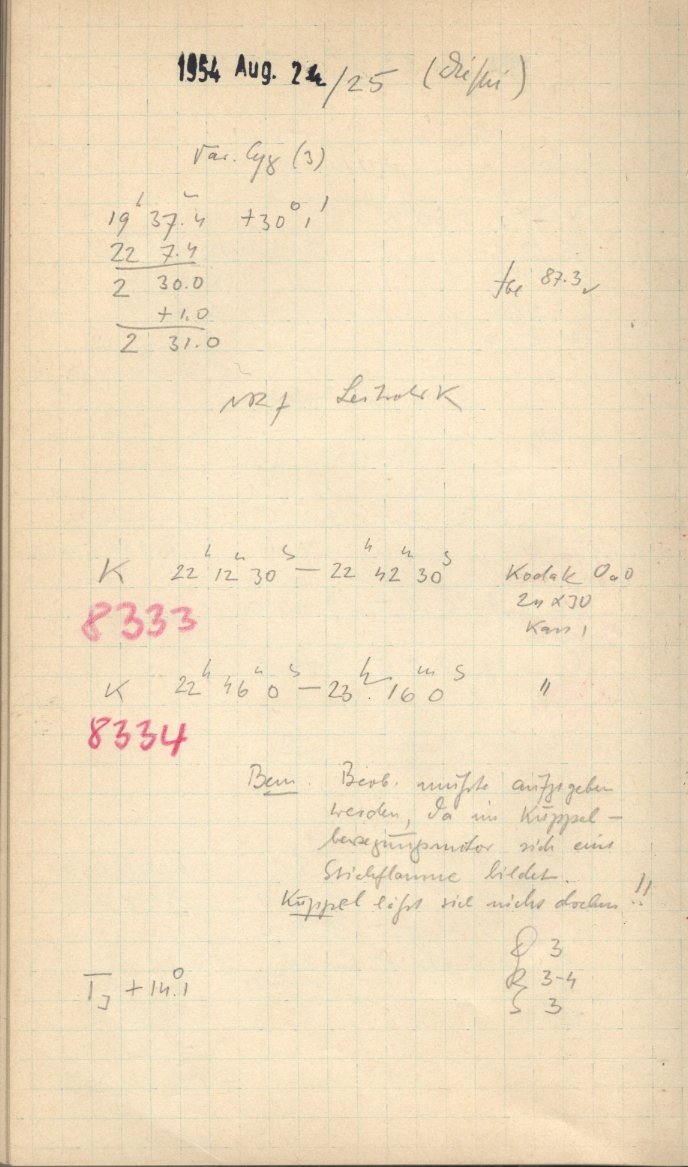 1954 Aug. 24/25
Var. Cyg (3)
19ʰ 37.4 +30° 1'
22 7.4
2 30.0
+1.0
2 31.0
87.3
K 22ʰ 12ᵐ 30ˢ — 22ʰ 42ᵐ 30ˢ Kodak OaO
24 x 30
Kass 1
8333
K 22ʰ 46ᵐ 0ˢ — 23ʰ 16ᵐ 0ˢ "
8334
Bem. Beob. mußte aufgegeben
werden, da im Kuppel-
bewegungsmotor sich eine
Stichflamme bildet.
Kuppel läßt sich nicht drehen!!
3
R 3-4
S 3
+14.1°